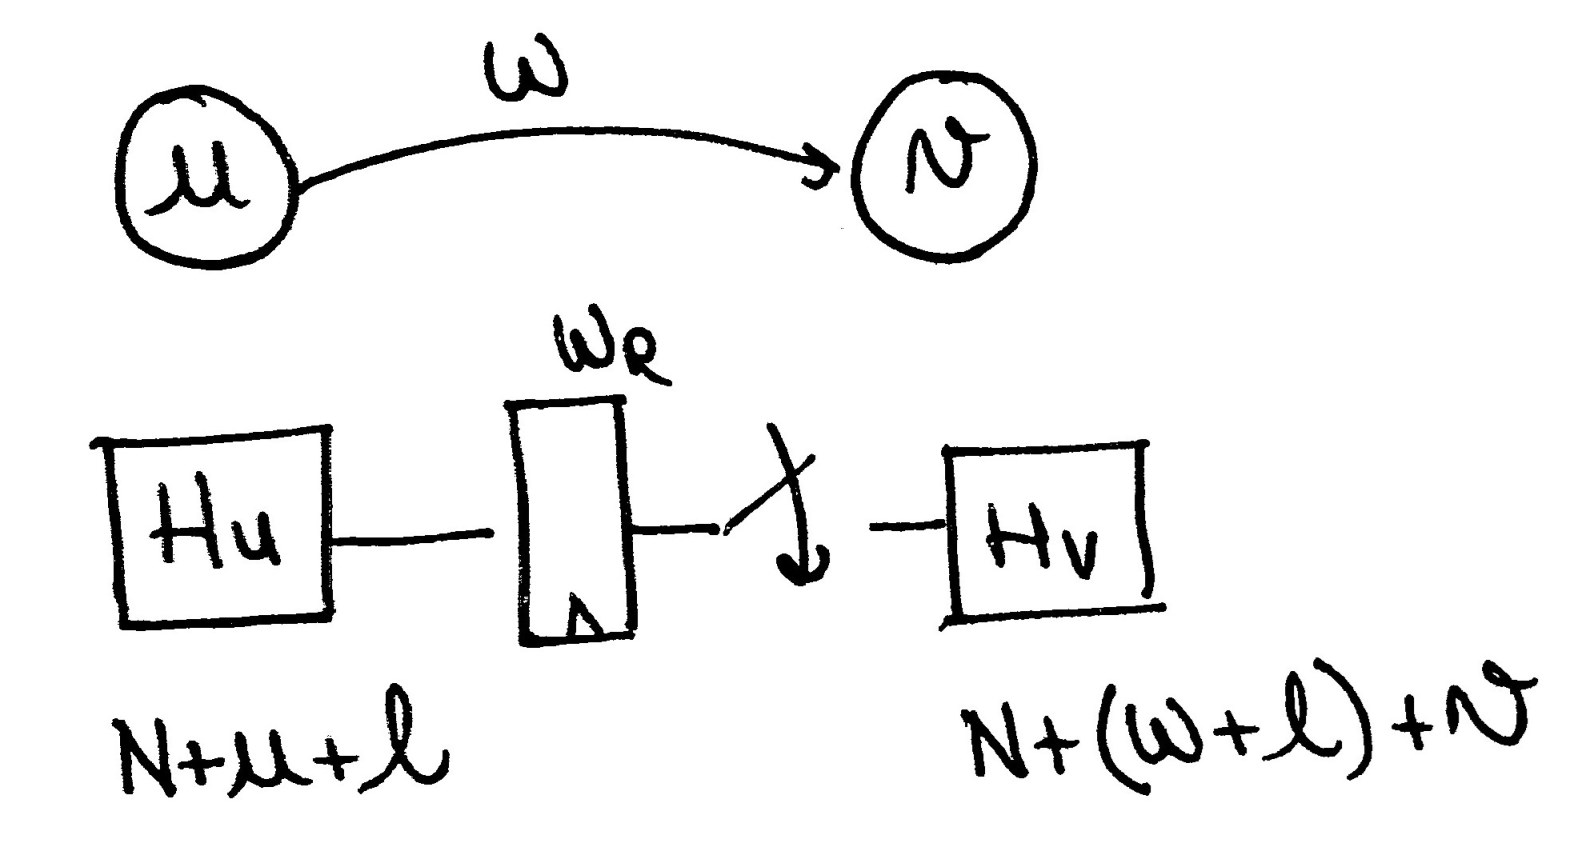 w
u v
WR
Hu Hv
N+u+l N+(w+l)+v